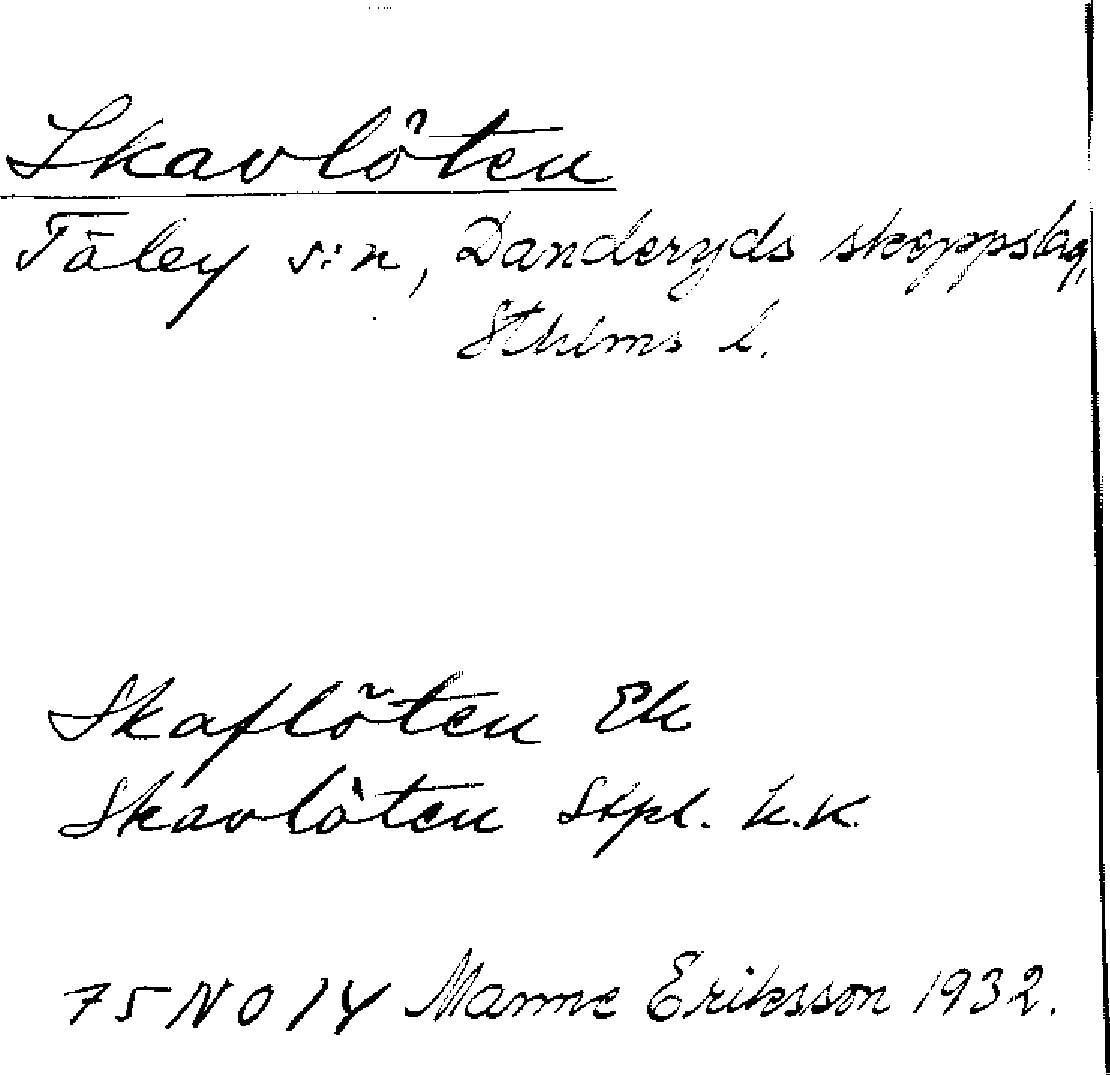 Skavlöten
Täby s:n, Danderyds skeppslag,
Sthlms l.
Skaflöten Ek
Skavlöten Stpl. k.K.
75 NO 14 Manne Eriksson 1932.